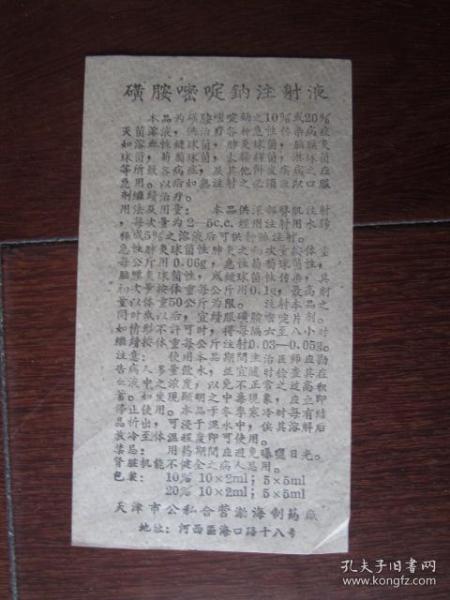 磺胺嘧啶鈉注射液
本品为磺胺嘧啶鈉之10%或20%
灭菌溶液，供治疗各种急性传染病症
如溶血性鏈球菌，肺炎球菌，脑膜炎
球菌，葡萄球菌，淋球菌
等所致各病症，及其他併发疾病之应
急用。以后如無注射之必須应以口服
剂繼續治疗。
用法及用量： 本品供深部臀肌注射
，每次量为2—5c.c.經用注射用水稀
释成5%之溶液后可供靜脉注射。
急性肺炎球菌性肺炎之初次量按体重
每公斤用0.06g，急性葡萄球菌性，
脑膜炎球菌性，或鏈球菌性传染，其
初次量按体重每公斤用0.1g，最高剂
量以体重50公斤为限。 注射本品之
同时或以后，宜續服磺胺嘧啶片剂。
如情形不許可时，得每隔六至八小时
繼續按体重每公斤注射0.03—0.05g。
注意： 使用本品期間主治医师应勸
告病人多量飲水，並宜随时检查其在
血液中之浓度，以免不正常之过高积
蓄。如发現顯明之中毒現象，应立即
停止使用。本品于冬季寒冷时每有结
晶析出，可浸于温水中，俟其溶解后
放冷至体温程度即可使用。
禁忌： 用药期間应避免曝曬日光。
肾脏机能不健全之病人忌用。
包装： 10% 10×2ml；5×5ml
20% 10×2ml；5×5ml
天津市公私合营渤海制药廠
地址：河西區海口路十八号
孔夫子旧书网
www.kongfz.com